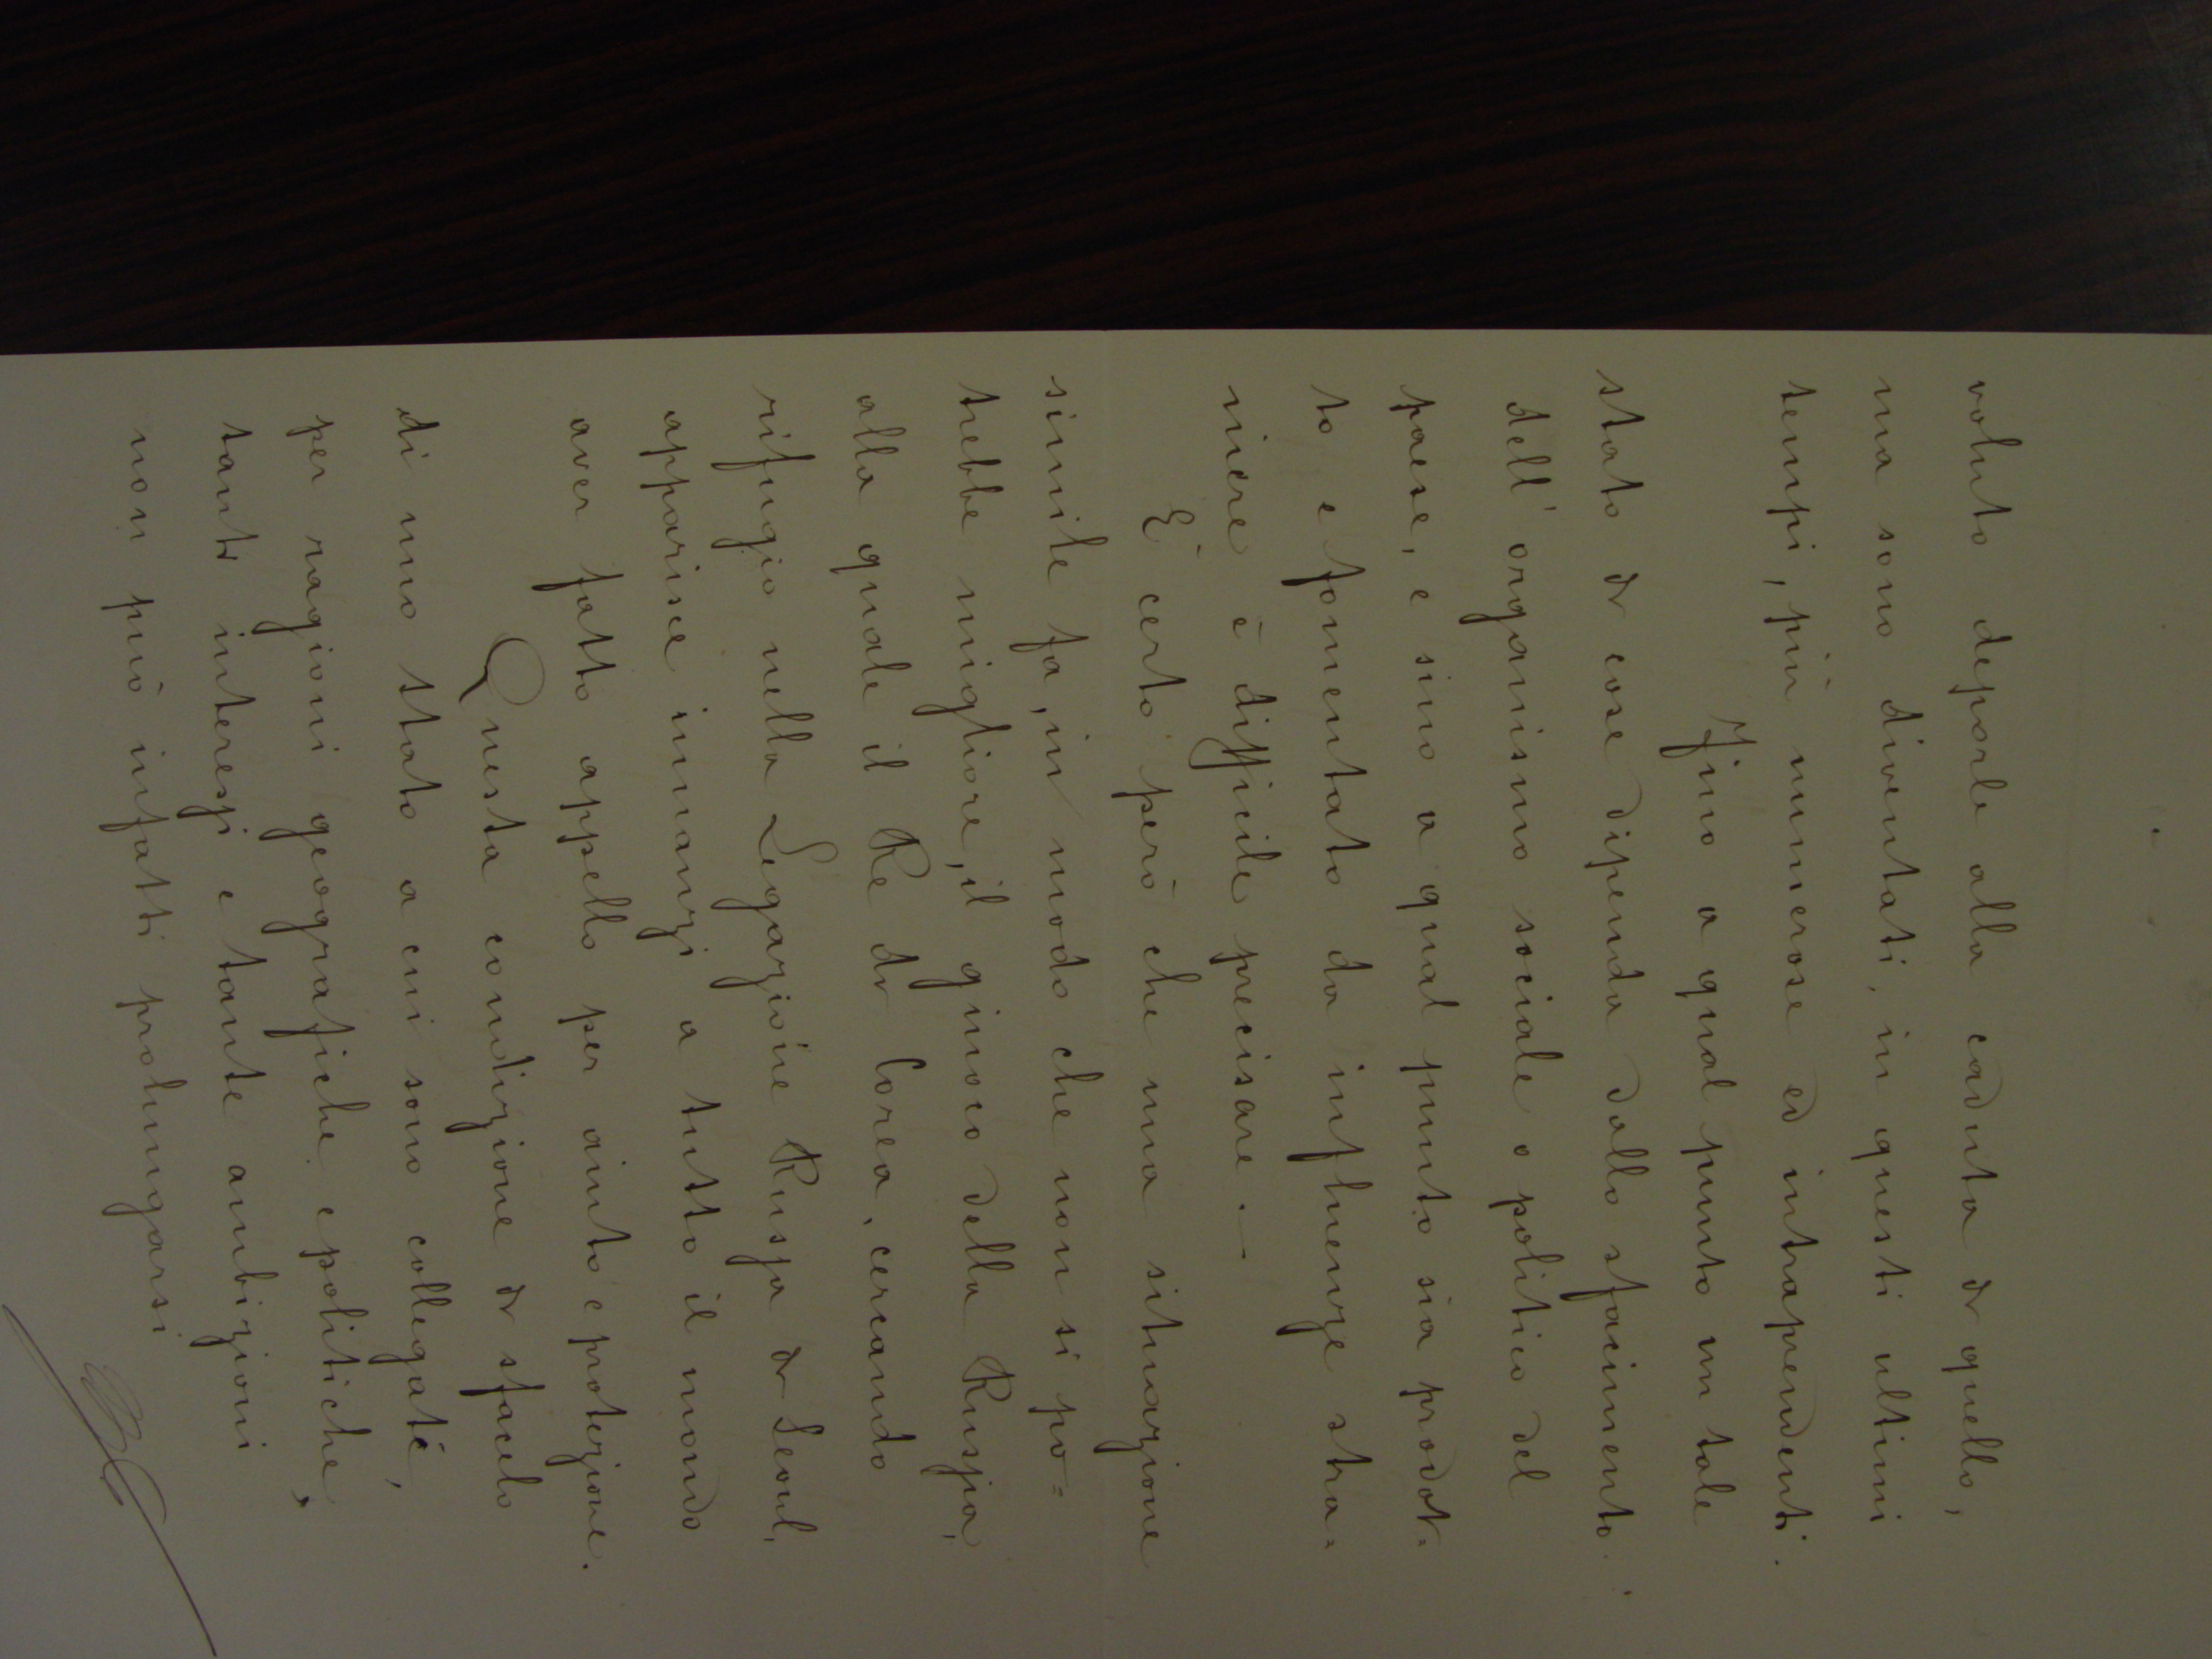 voluto deporle alla caduta di quello,
ma sono diventati, in questi ultimi
tempi, più numerose ed intraprendenti.
Fino a qual punto un tale
stato di cose dipenda dallo sfacimento
dell'organismo sociale o politico del
paese, e sino a qual punto sia prodot=
to e fomentato da influenze stra=
niere è difficile precisare. —
E' certo però che una situazione
simile fa, in modo che non si po=
trebbe migliore, il giuoco della Russia,
alla quale il Re di Corea, cercando
rifugio nella Legazione Russa di Seoul,
apparisce innanzi a tutto il mondo
aver fatto appello per aiuto e protezione.
Questa condizione di sfacelo
di uno stato a cui sono collegate,
per ragioni geografiche e politiche,
tanti interessi e tante ambizioni
non può infatti prolungarsi